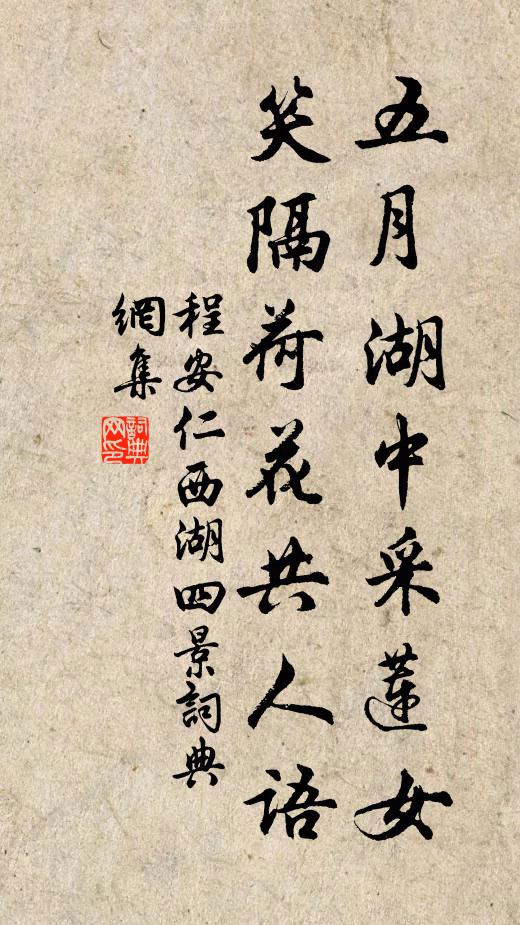 五月湖中采蓮女
笑隔荷花共人語
程安仁西湖四景詞典
網集
詞典網印